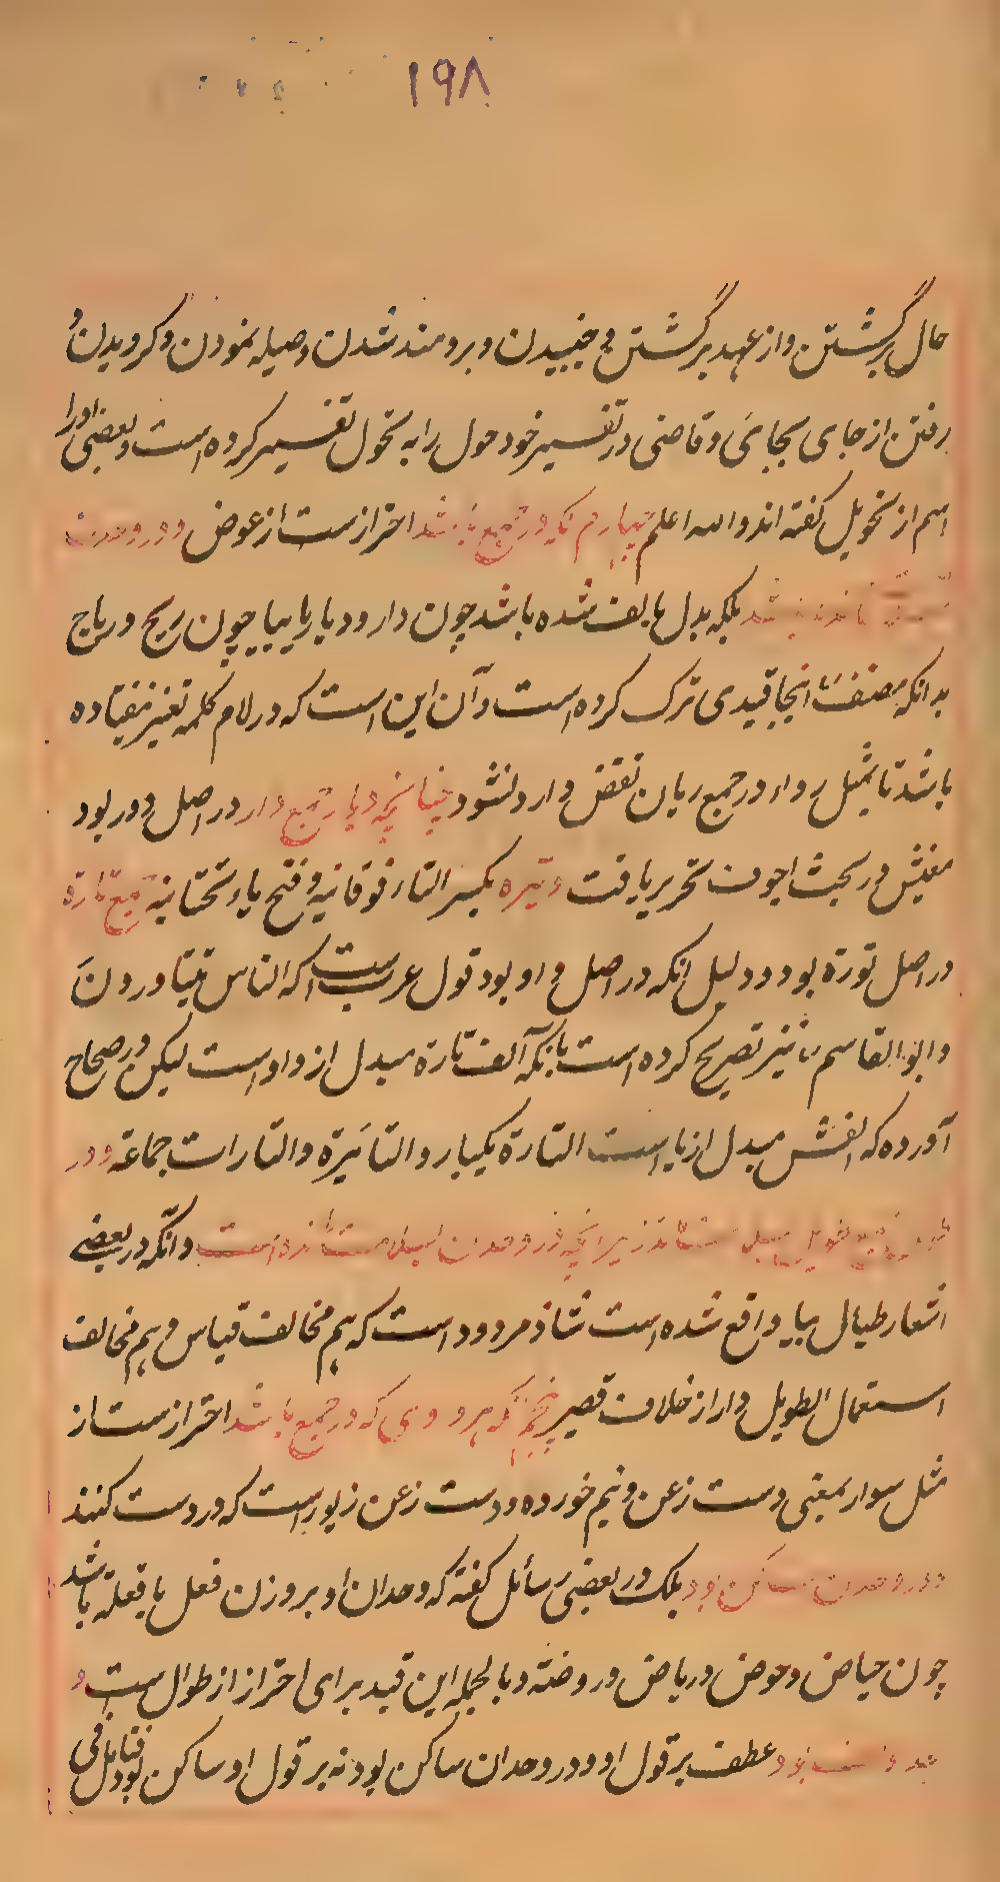 ۱۹۸
حال برگشتن و از عهد برگشتن و جنبیدن و برومند شدن و حیله نمودن و گرویدن و
رفتن از جای بجای و قاضی در تفسیر خود حول را به تحول تفسیر کرده است و بعضی اورا
اسم از تحویل گفته اند والله اعلم چهارم که در جمع باشد احترازست از عوض و در وحدت
نباشد بلکه بدل بالف شده باشد چون دار و دیار یا بیا چون ریح و ریاح
بدانکه مصنف اینجا قیدی ترک کرده است و آن این است که در لام کلمه تغیر نیفتاده
باشد تا بمثل رواء در جمع ریان نقض وارد نشود چنانچه دیار جمع دار در اصل دور بود
مفتش در بحث اجوف تحریر یافت و تیره بکسر التاء فوقانیه و فتح یاء تحتانیه جمع تارة
در اصل تورة بود و دلیل انکه در اصل واو بود قول عرب است که الناس یتتاورون
و ابوالقاسم نیز تصریح کرده است بانکه الف تارة مبدل از واو است لیکن در صحاح
آورده که الفش مبدل از یا است التارة یکبار و التیرة و التارات جماعة و در
وانکه در بعضی
اشعار طیال بیا واقع شده است شاذ مردود است که هم مخالف قیاس و هم مخالف
استعمال الطویل دراز خلاف قصیر پنجم آنکه هر واوی که در جمع باشد احترازست از
مثل سوار بمعنی دست زعن و نیم خورده و دست زعن زیور است که در دست کنند
و در وحدان ساکن بود بلک در بعضی رسائل گفته که وحدان او بر وزن فعل یا فعلة باشد
چون حیاض و حوض و ریاض و روضة و بالجمله این قید برای احتراز از طوال است و
بود عطف بر قول او و در وحدان ساکن بود نه بر قول او ساکن بود